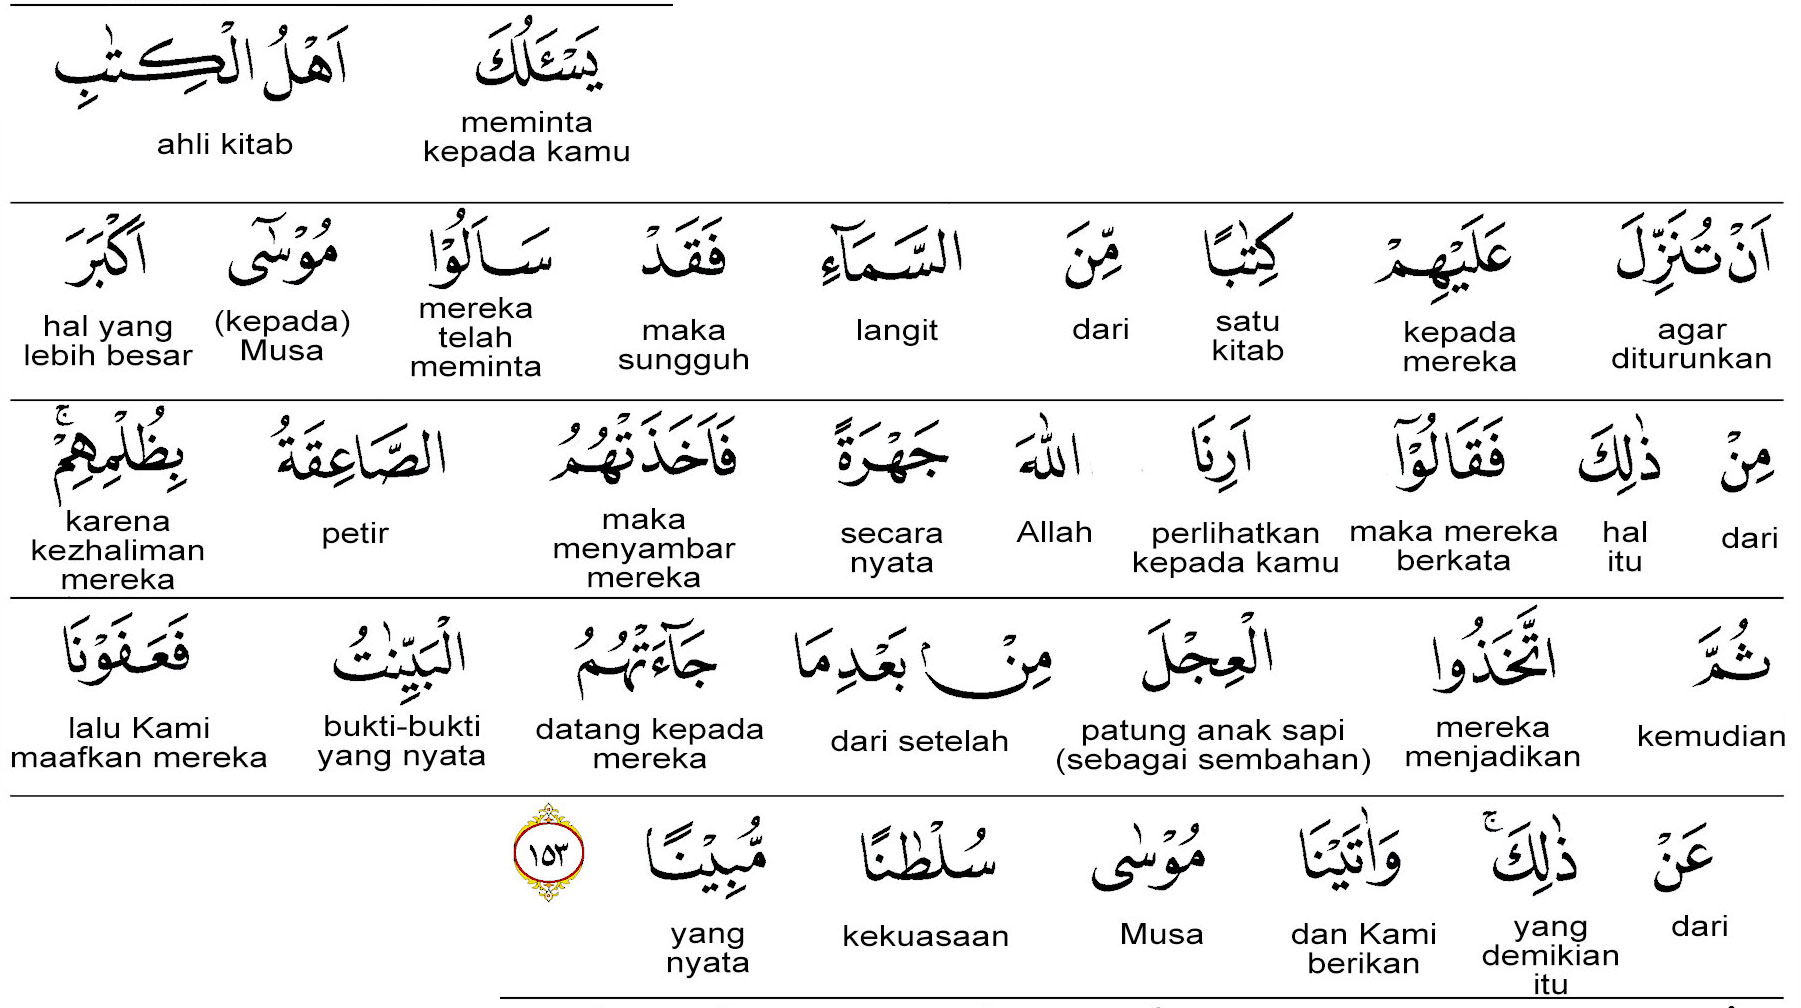 يَسْـَٔلُكَ اَهْلُ الْكِتٰبِ
meminta kepada kamu ahli kitab
اَنْ تُنَزِّلَ عَلَيْهِمْ كِتٰبًا مِّنَ السَّمَاۤءِ فَقَدْ سَاَلُوْا مُوْسٰٓى اَكْبَرَ
agar diturunkan kepada mereka satu kitab dari langit maka sungguh mereka telah meminta (kepada) Musa hal yang lebih besar
مِنْ ذٰلِكَ فَقَالُوْٓا اَرِنَا اللّٰهَ جَهْرَةً فَاَخَذَتْهُمُ الصَّاعِقَةُ بِظُلْمِهِمْۚ
dari hal itu maka mereka berkata perlihatkan kepada kamu Allah secara nyata maka menyambar mereka petir karena kezhaliman mereka
ثُمَّ اتَّخَذُوا الْعِجْلَ مِنْۢ بَعْدِ مَا جَاۤءَتْهُمُ الْبَيِّنٰتُ فَعَفَوْنَا
kemudian mereka menjadikan patung anak sapi (sebagai sembahan) dari setelah datang kepada mereka bukti-bukti yang nyata lalu Kami maafkan mereka
عَنْ ذٰلِكَۚ وَاٰتَيْنَا مُوْسٰى سُلْطٰنًا مُّبِيْنًا ١٥٣
dari yang demikian itu dan Kami berikan Musa kekuasaan yang nyata